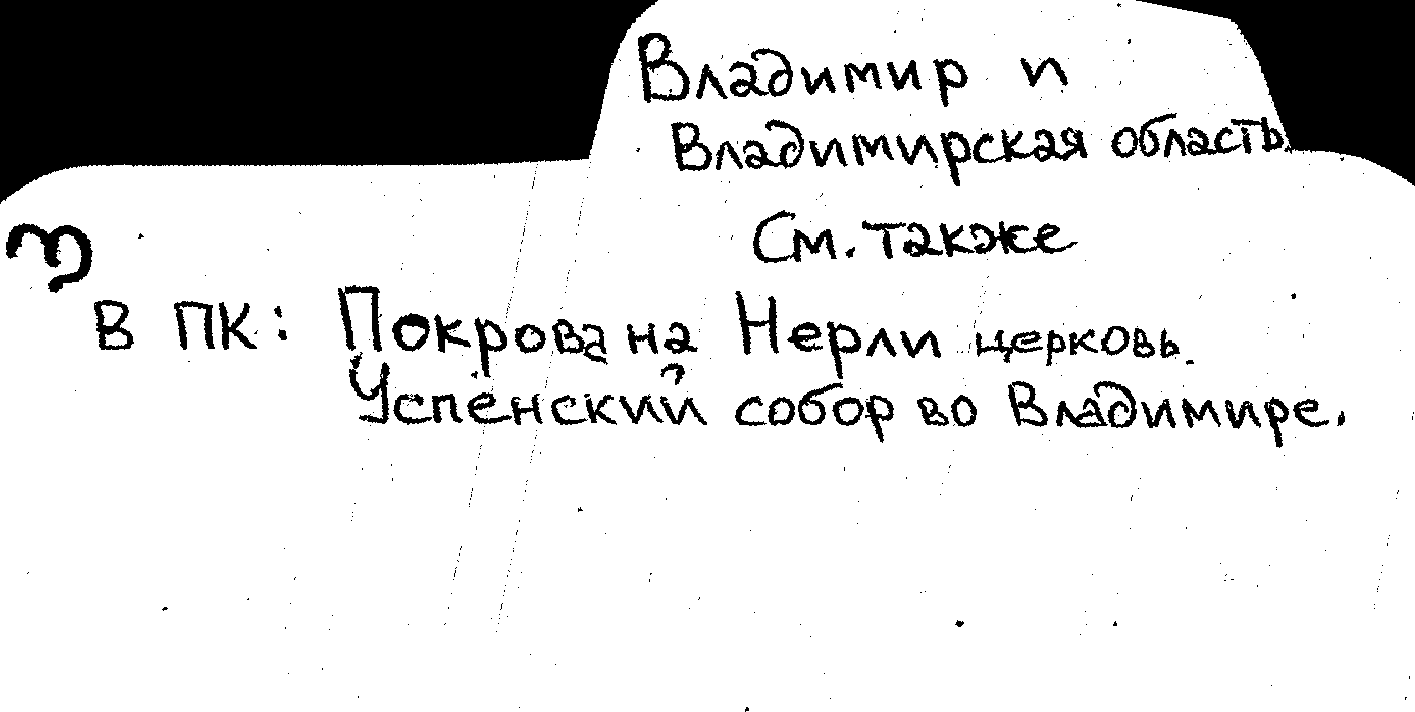 Владимир и
Владимирская область.
См. также
В ПК: Покрова на Нерли церковь.
Успенский собор во Владимире.